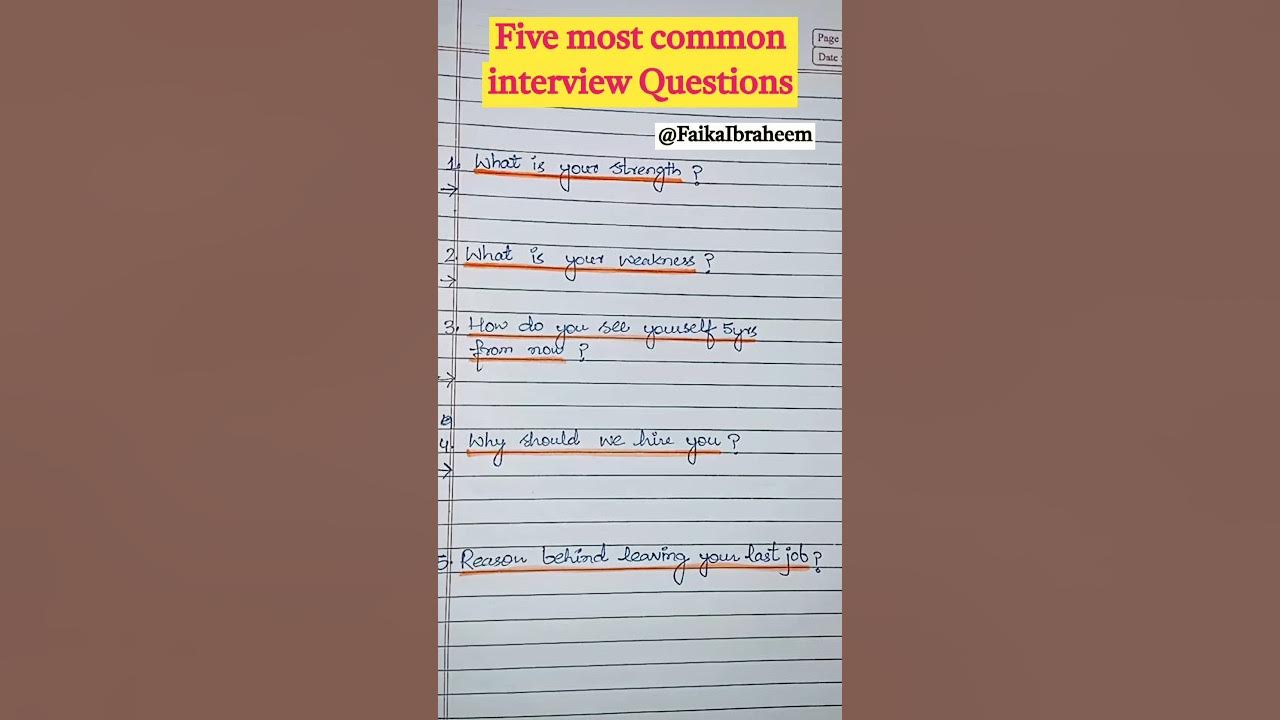 Five most common
interview Questions
Page
Date :
@FaikaIbraheem
1. What is your strength ?
→
2. What is your weakness ?
→
3. How do you see yourself 5yrs
from now ?
→
4. Why should we hire you ?
→
5. Reason behind leaving your last job ?